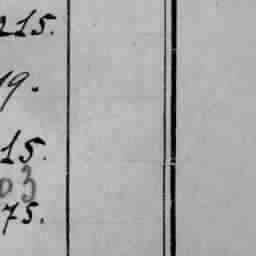 215.
19.
15.
03
75.